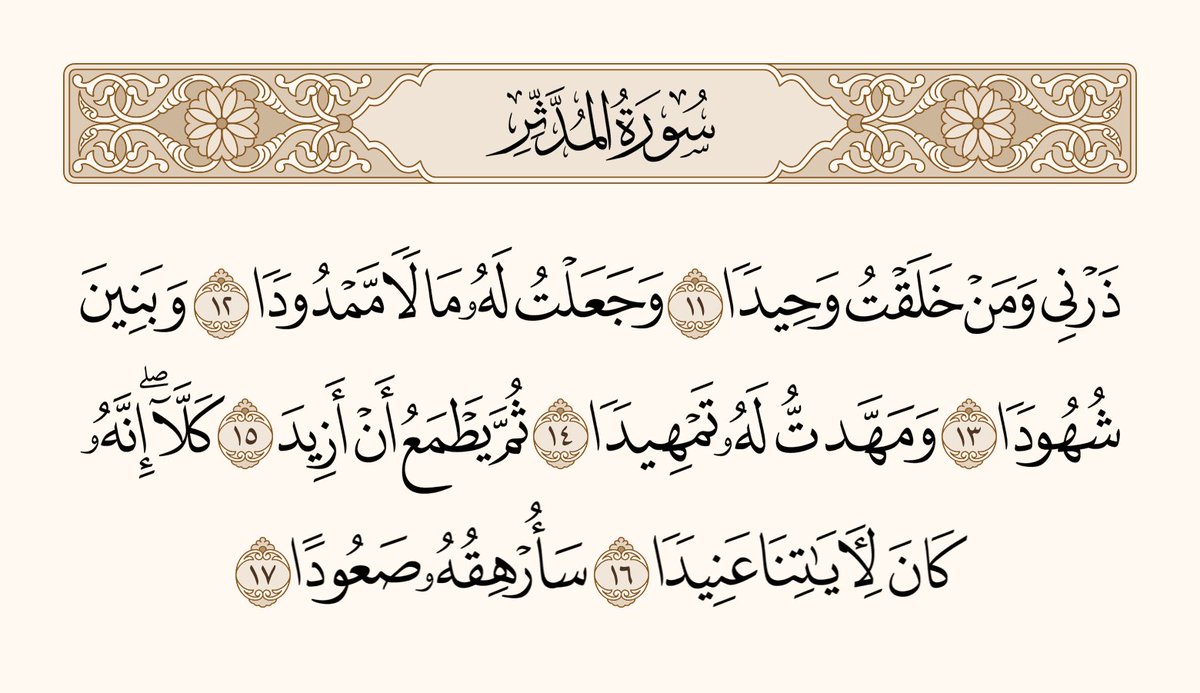 سُورَةُ المُدَّثِّرِ
ذَرْنِي وَمَنْ خَلَقْتُ وَحِيدًا ١١ وَجَعَلْتُ لَهُۥ مَالًا مَّمْدُودًا ١٢ وَبَنِينَ
شُهُودًا ١٣ وَمَهَّدتُّ لَهُۥ تَمْهِيدًا ١٤ ثُمَّ يَطْمَعُ أَنْ أَزِيدَ ١٥ كَلَّآۖ إِنَّهُۥ
كَانَ لِأٓيَٰتِنَا عَنِيدًا ١٦ سَأُرْهِقُهُۥ صَعُودًا ١٧